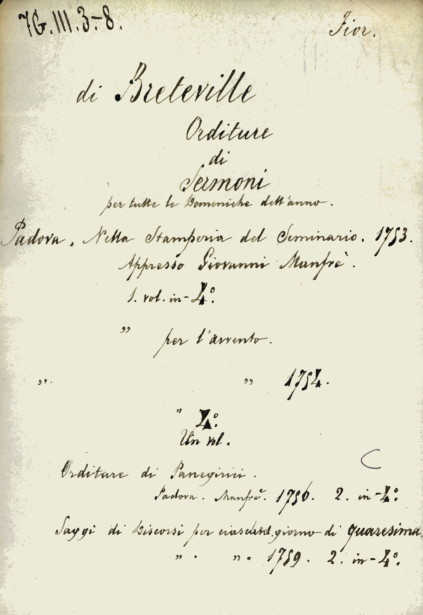 7G.III.3-8.
Fior.
di Breteville
Orditure
di
Sermoni
per tutte le Domeniche dell'anno.
Padova. Nella Stamperia del Seminario. 1753.
Appresso Giovanni Manfrè.
1. vol. in-4º
" per l'avvento.
" " 1754.
" 4º
Un vol.
Orditure di Panegirici.
Padova. Manfrè. 1756. 2. in-4º
Saggi di Discorsi per ciascun giorno di quaresima
" . " . 1759. 2. in-4º